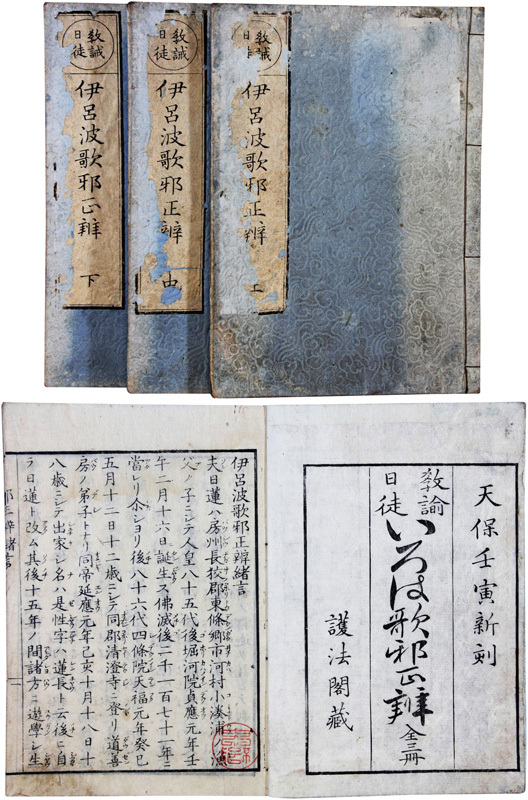 教誡
日徒
伊呂波歌邪正辨 上
教誡
日徒
伊呂波歌邪正辨 中
教誡
日徒
伊呂波歌邪正辨 下
天保壬寅新刻
教諭
日徒
いろは歌邪正辨 全三冊
護法閣藏
伊呂波歌邪正辨緒言
夫日蓮ハ房州長狹郡東條郷市河村小湊浦ノ漁
父ノ子ニシテ人皇八十五代後堀河院貞應元年壬
午二月十六日誕生ス佛滅後二千一百七十一年ニ
當レリ尒ショリ後八十六代四條院天福元年癸巳
五月十二日十二歳ニシテ同郡清澄寺ニ登リ道善
房ノ弟子トナリ同帝延應元年己亥十月十八日十
八歳ニシテ出家シ名ハ是性字ハ蓮長ト云後ニ自
ラ日蓮ト改ム其後十五年ノ間諸方ニ遊學シ生